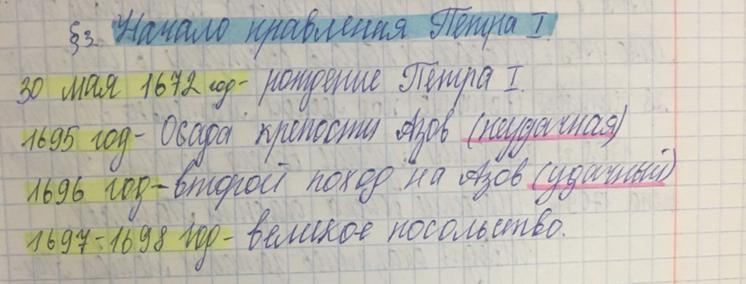 §3. Начало правления Петра I.
30 мая 1672 год - рождение Петра I.
1695 год - Осада крепости Азов (неудачная)
1696 год - второй поход на Азов (удачный)
1697-1698 год - великое посольство.